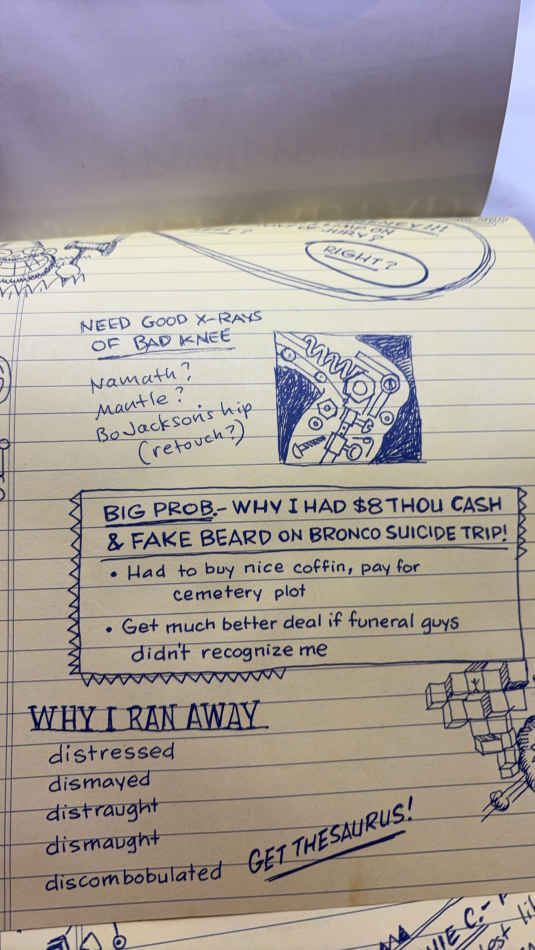 LIMP ON
INJURY?
RIGHT?
NEED GOOD X-RAYS
OF BAD KNEE
Namath?
Mantle?
Bo Jackson's hip
(retouch?)
BIG PROB.- WHY I HAD $8 THOU CASH
& FAKE BEARD ON BRONCO SUICIDE TRIP!
• Had to buy nice coffin, pay for
cemetery plot
• Get much better deal if funeral guys
didn't recognize me
WHY I RAN AWAY
distressed
dismayed
distraught
dismaught
discombobulated
GET THESAURUS!
C.-